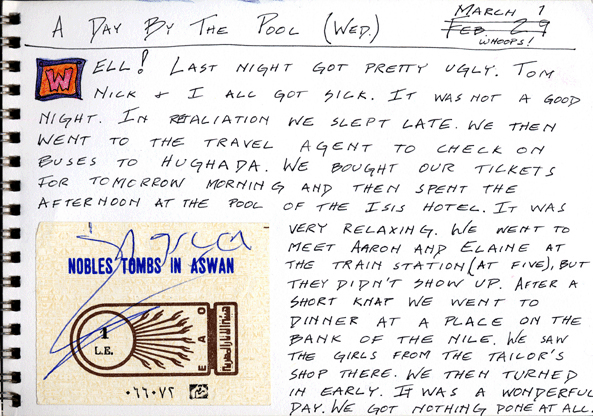 A DAY BY THE POOL (WED.) MARCH 1
FEB 29
WHOOPS!
WELL! LAST NIGHT GOT PRETTY UGLY. TOM
NICK & I ALL GOT SICK. IT WAS NOT A GOOD
NIGHT. IN RETALIATION WE SLEPT LATE. WE THEN
WENT TO THE TRAVEL AGENT TO CHECK ON
BUSES TO HUGHADA. WE BOUGHT OUR TICKETS
FOR TOMORROW MORNING AND THEN SPENT THE
AFTERNOON AT THE POOL OF THE ISIS HOTEL. IT WAS
VERY RELAXING. WE WENT TO
MEET AARON AND ELAINE AT
THE TRAIN STATION (AT FIVE), BUT
THEY DIDN'T SHOW UP. AFTER A
SHORT KNAP WE WENT TO
DINNER AT A PLACE ON THE
BANK OF THE NILE. WE SAW
THE GIRLS FROM THE TAILOR'S
SHOP THERE. WE THEN TURNED
IN EARLY. IT WAS A WONDERFUL
DAY. WE GOT NOTHING DONE AT ALL.
NOBLES TOMBS IN ASWAN
1
L.E.
E A O
هيئة الآثار المصرية
٠٦٦٠٧٢